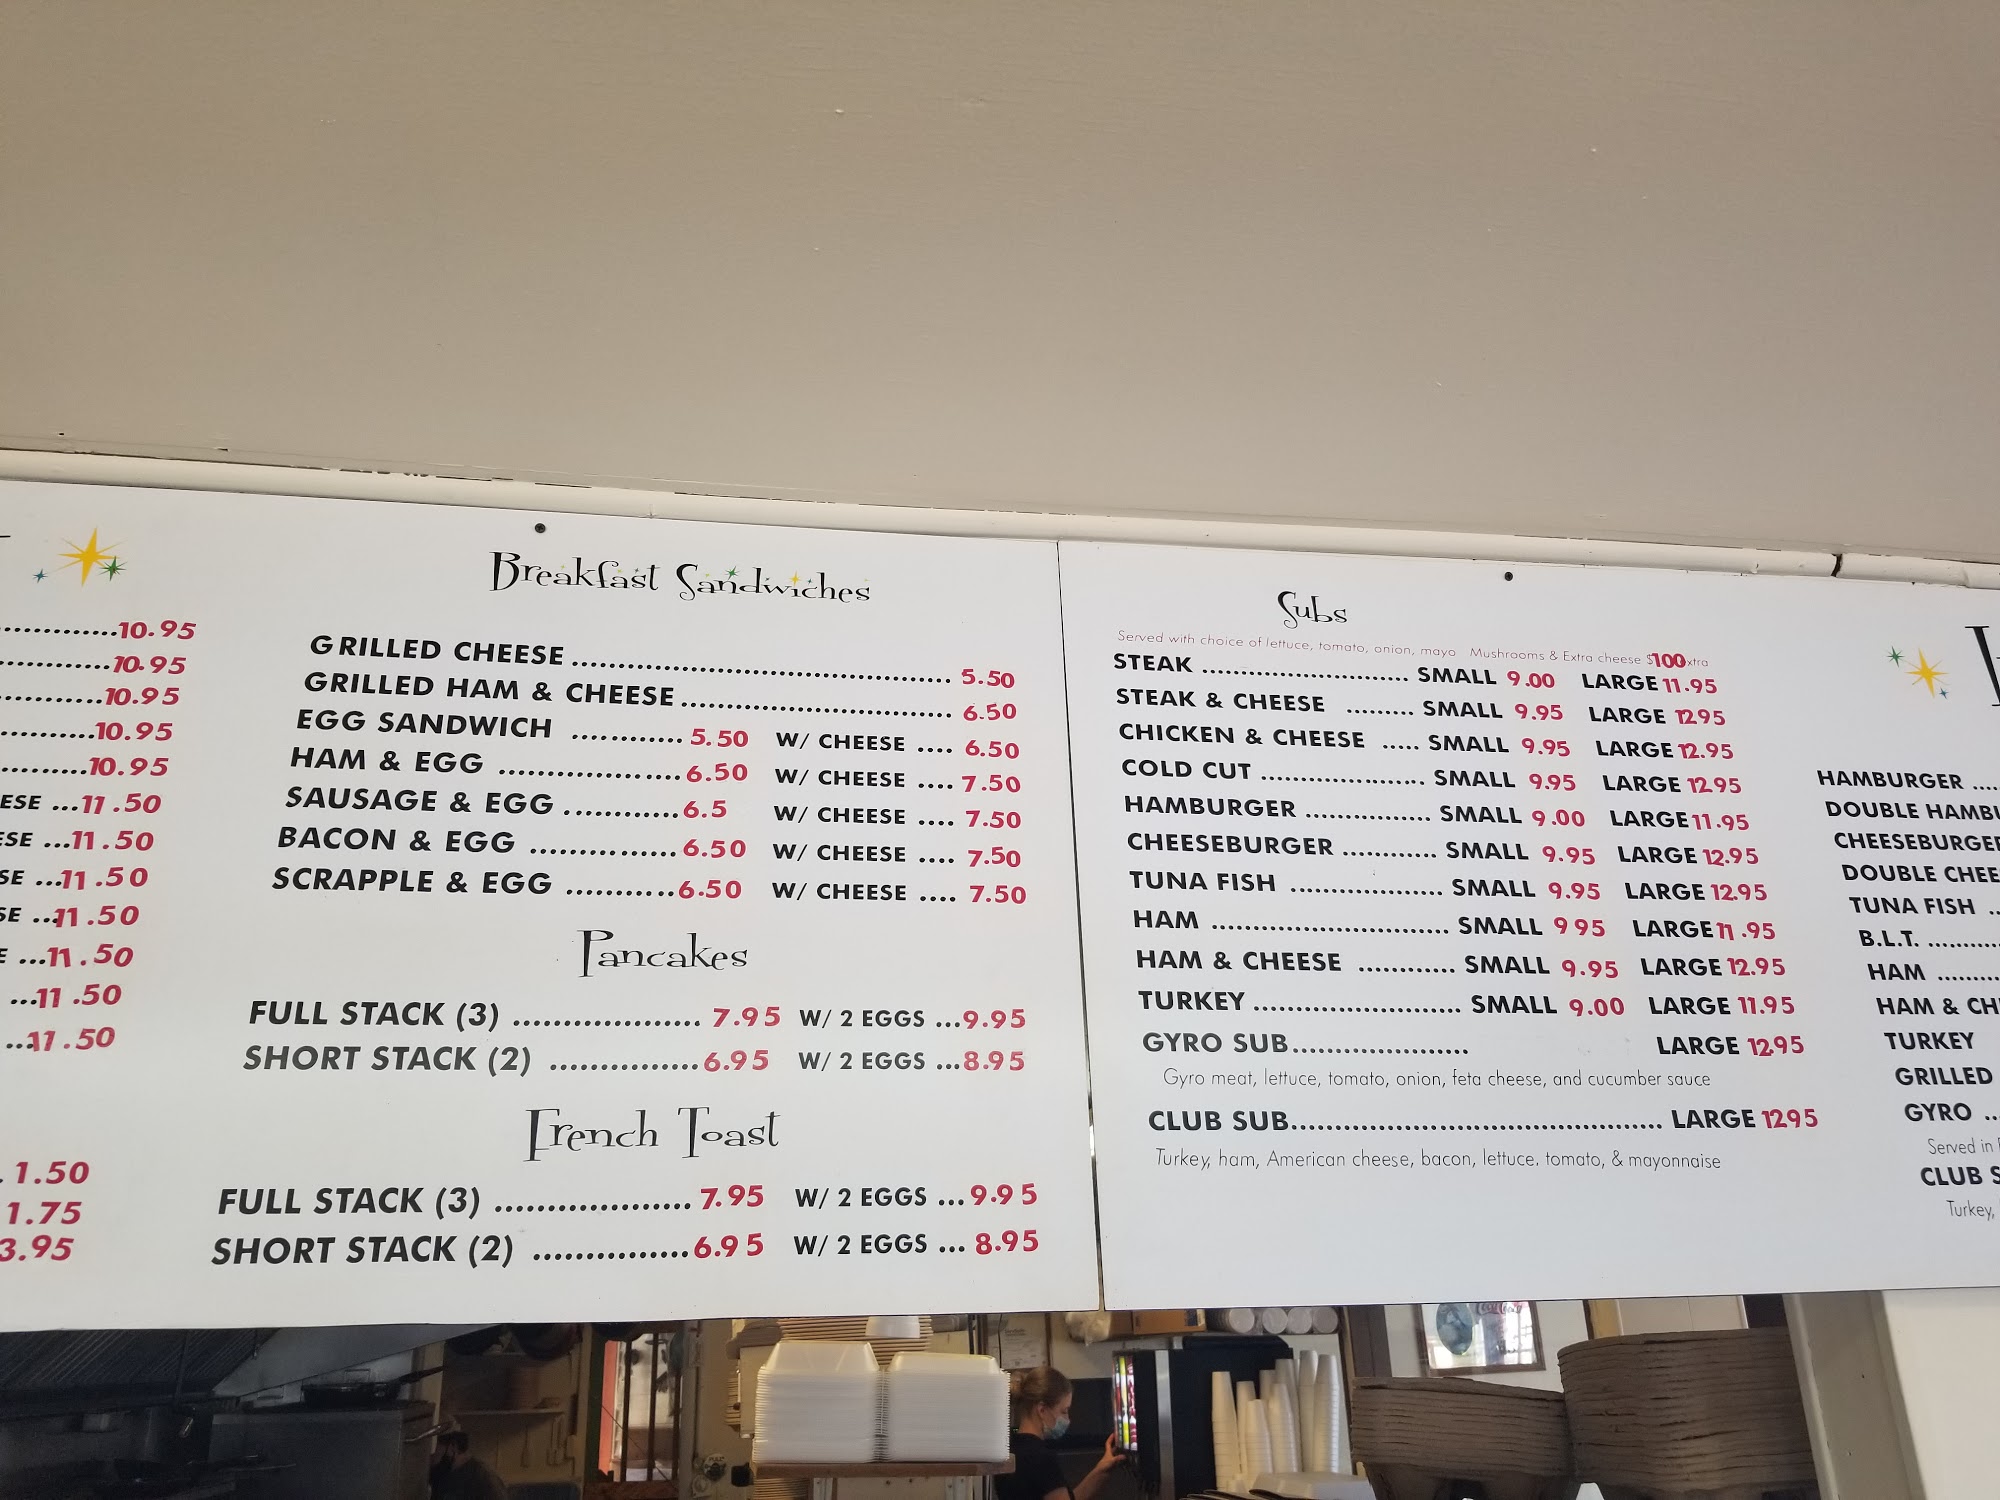 10.95
10.95
10.95
10.95
10.95
ESE ...11.50
ESE ...11.50
SE ...11.50
SE ...11.50
E ...11.50
...11.50
...11.50
1.50
1.75
3.95
Breakfast Sandwiches
GRILLED CHEESE ........ 5.50
GRILLED HAM & CHEESE ........ 6.50
EGG SANDWICH ........ 5.50 W/ CHEESE .... 6.50
HAM & EGG ........ 6.50 W/ CHEESE .... 7.50
SAUSAGE & EGG ........ 6.5 W/ CHEESE .... 7.50
BACON & EGG ........ 6.50 W/ CHEESE .... 7.50
SCRAPPLE & EGG ........ 6.50 W/ CHEESE .... 7.50
Pancakes
FULL STACK (3) ........ 7.95 W/ 2 EGGS ...9.95
SHORT STACK (2) ........ 6.95 W/ 2 EGGS ...8.95
French Toast
FULL STACK (3) ........ 7.95 W/ 2 EGGS ...9.95
SHORT STACK (2) ........ 6.95 W/ 2 EGGS ... 8.95
Subs
Served with choice of lettuce, tomato, onion, mayo Mushrooms & Extra cheese $100xtra
STEAK ........ SMALL 9.00 LARGE 11.95
STEAK & CHEESE ........ SMALL 9.95 LARGE 1295
CHICKEN & CHEESE ..... SMALL 9.95 LARGE 12.95
COLD CUT ........ SMALL 9.95 LARGE 12.95
HAMBURGER ........ SMALL 9.00 LARGE 11.95
CHEESEBURGER ........ SMALL 9.95 LARGE 12.95
TUNA FISH ........ SMALL 9.95 LARGE 12.95
HAM ........ SMALL 9 95 LARGE 11.95
HAM & CHEESE ........ SMALL 9.95 LARGE 12.95
TURKEY ........ SMALL 9.00 LARGE 11.95
GYRO SUB ........ LARGE 12.95
Gyro meat, lettuce, tomato, onion, feta cheese, and cucumber sauce
CLUB SUB ........ LARGE 1295
Turkey, ham, American cheese, bacon, lettuce, tomato, & mayonnaise
HAMBURGER ....
DOUBLE HAMBU
CHEESEBURGER
DOUBLE CHEE
TUNA FISH ..
B.L.T. ........
HAM ........
HAM & CH
TURKEY
GRILLED
GYRO ..
Served in
CLUB S
Turkey,